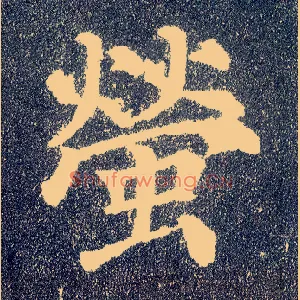 螢
Shufawang.cn